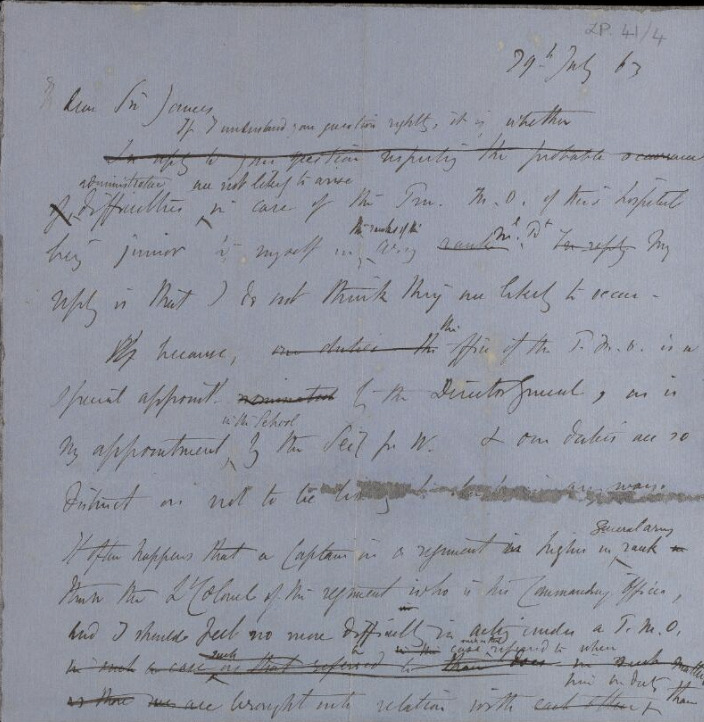 LP. 41/4
29th July 63
Dear Sir James
If I understand your question rightly, it is, whether
In reply to your question respecting the probable occurrence
administrative are not likely to arise
of difficulties in case of the P.M.O. of this hospital
being junior to myself in the ranks of the army rank In reply My
reply is that I do not think they are likely to occur -
because, our duties the the office of the P.M.O. is a
special appointt. nominated by the Director General, as is
in the School
My appointment, by the Sec for W. & our duties are so
distinct as not to
general army
It often happens that a Captain in a regiment is higher in rank
than the Lt Colonel of the regiment who is his Commanding Officer,
and I should feel no more difficulty in acting under a P.M.O.
in such a case such as that referred to than does in such case referred to when
him on duty than
are brought into relation with each other